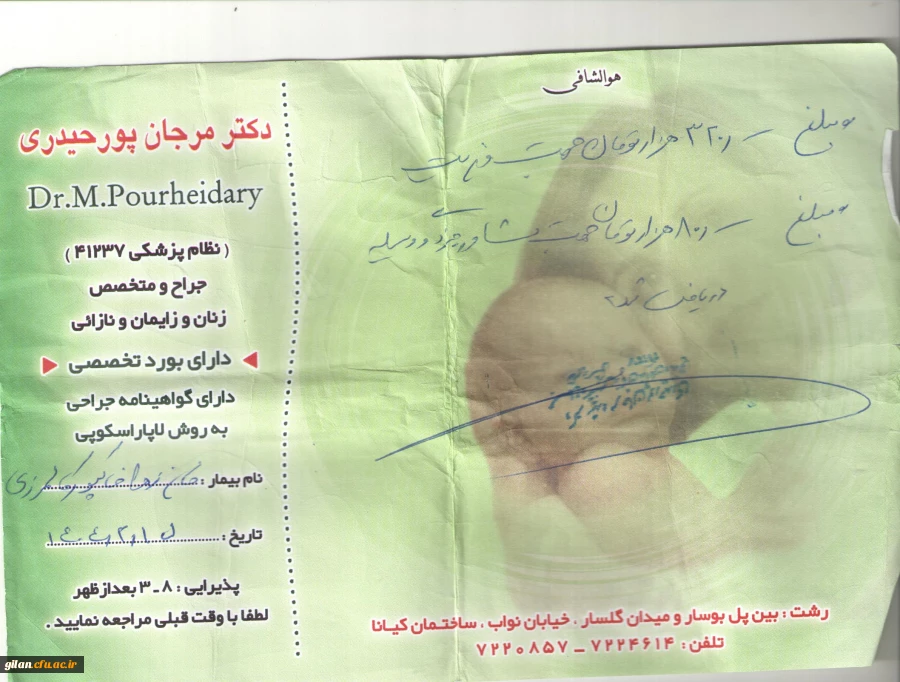 هوالشافی
دکتر مرجان پورحیدری
Dr.M.Pourheidary
( نظام پزشکی ۴۱۲۳۷ )
جراح و متخصص
زنان و زایمان و نازائی
دارای بورد تخصصی
دارای گواهینامه جراحی
به روش لاپاراسکوپی
نام بیمار :
تاریخ :
پذیرایی : ۸ ـ ۳ بعدازظهر
لطفا با وقت قبلی مراجعه نمایید .
مبلغ ۳۲۰ هزار تومان جهت
مبلغ ۸۰ هزار تومان جهت
دریافت شد
رشت : بین پل بوسار و میدان گلسار ، خیابان نواب ، ساختمان کیانا
تلفن : ۷۲۲۴۶۱۴ ـ ۷۲۲۰۸۵۷
gilan.cfu.ac.ir